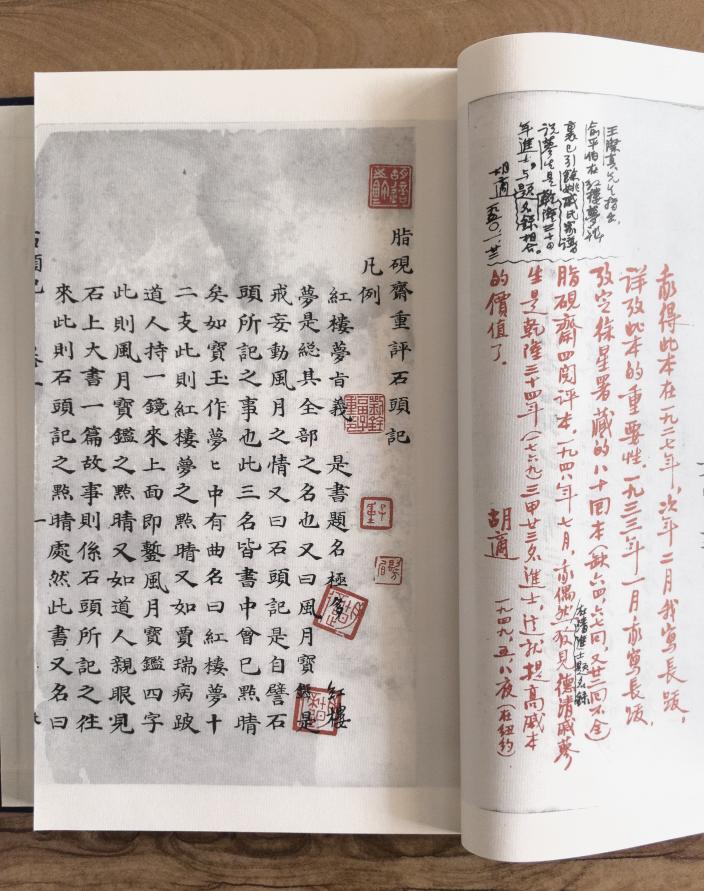 我得此本在一九二七年，次年二月我寫長跋，
詳攷此本的重要性。一九三三年一月我寫長跋，
攷定徐星署藏的八十回本（缺六四、六七回，又廿二回不全）
脂硯齋四閱評本。一九四八年七月，我偶然在清進士題名錄發見德清戚蓼
生是乾隆三十四年（一七六九）三甲廿三名進士，這就提高戚本
的價值了。 胡適 一九四九，五，八夜（在紐約）
王際真先生指出，
俞平伯在紅樓夢辨
裏已引餘姚戚氏家譜
說蓼生是乾隆三十四
年進士，与題名錄相合。
胡適 一九五〇・一・廿三
脂硯齋重評石頭記
凡例
紅樓夢旨義 是書題名極多 紅樓
夢是總其全部之名也又曰風月寶鑑是
戒妄動風月之情又曰石頭記是自譬石
頭所記之事也此三名皆書中曾已點睛
矣如寶玉作夢〻中有曲名曰紅樓夢十
二支此則紅樓夢之點睛又如賈瑞病跛
道人持一鏡來上面即鏨風月寶鑑四字
此則風月寶鑑之點睛又如道人親眼見
石上大書一篇故事則係石頭所記之往
來此則石頭記之點睛處然此書又名曰